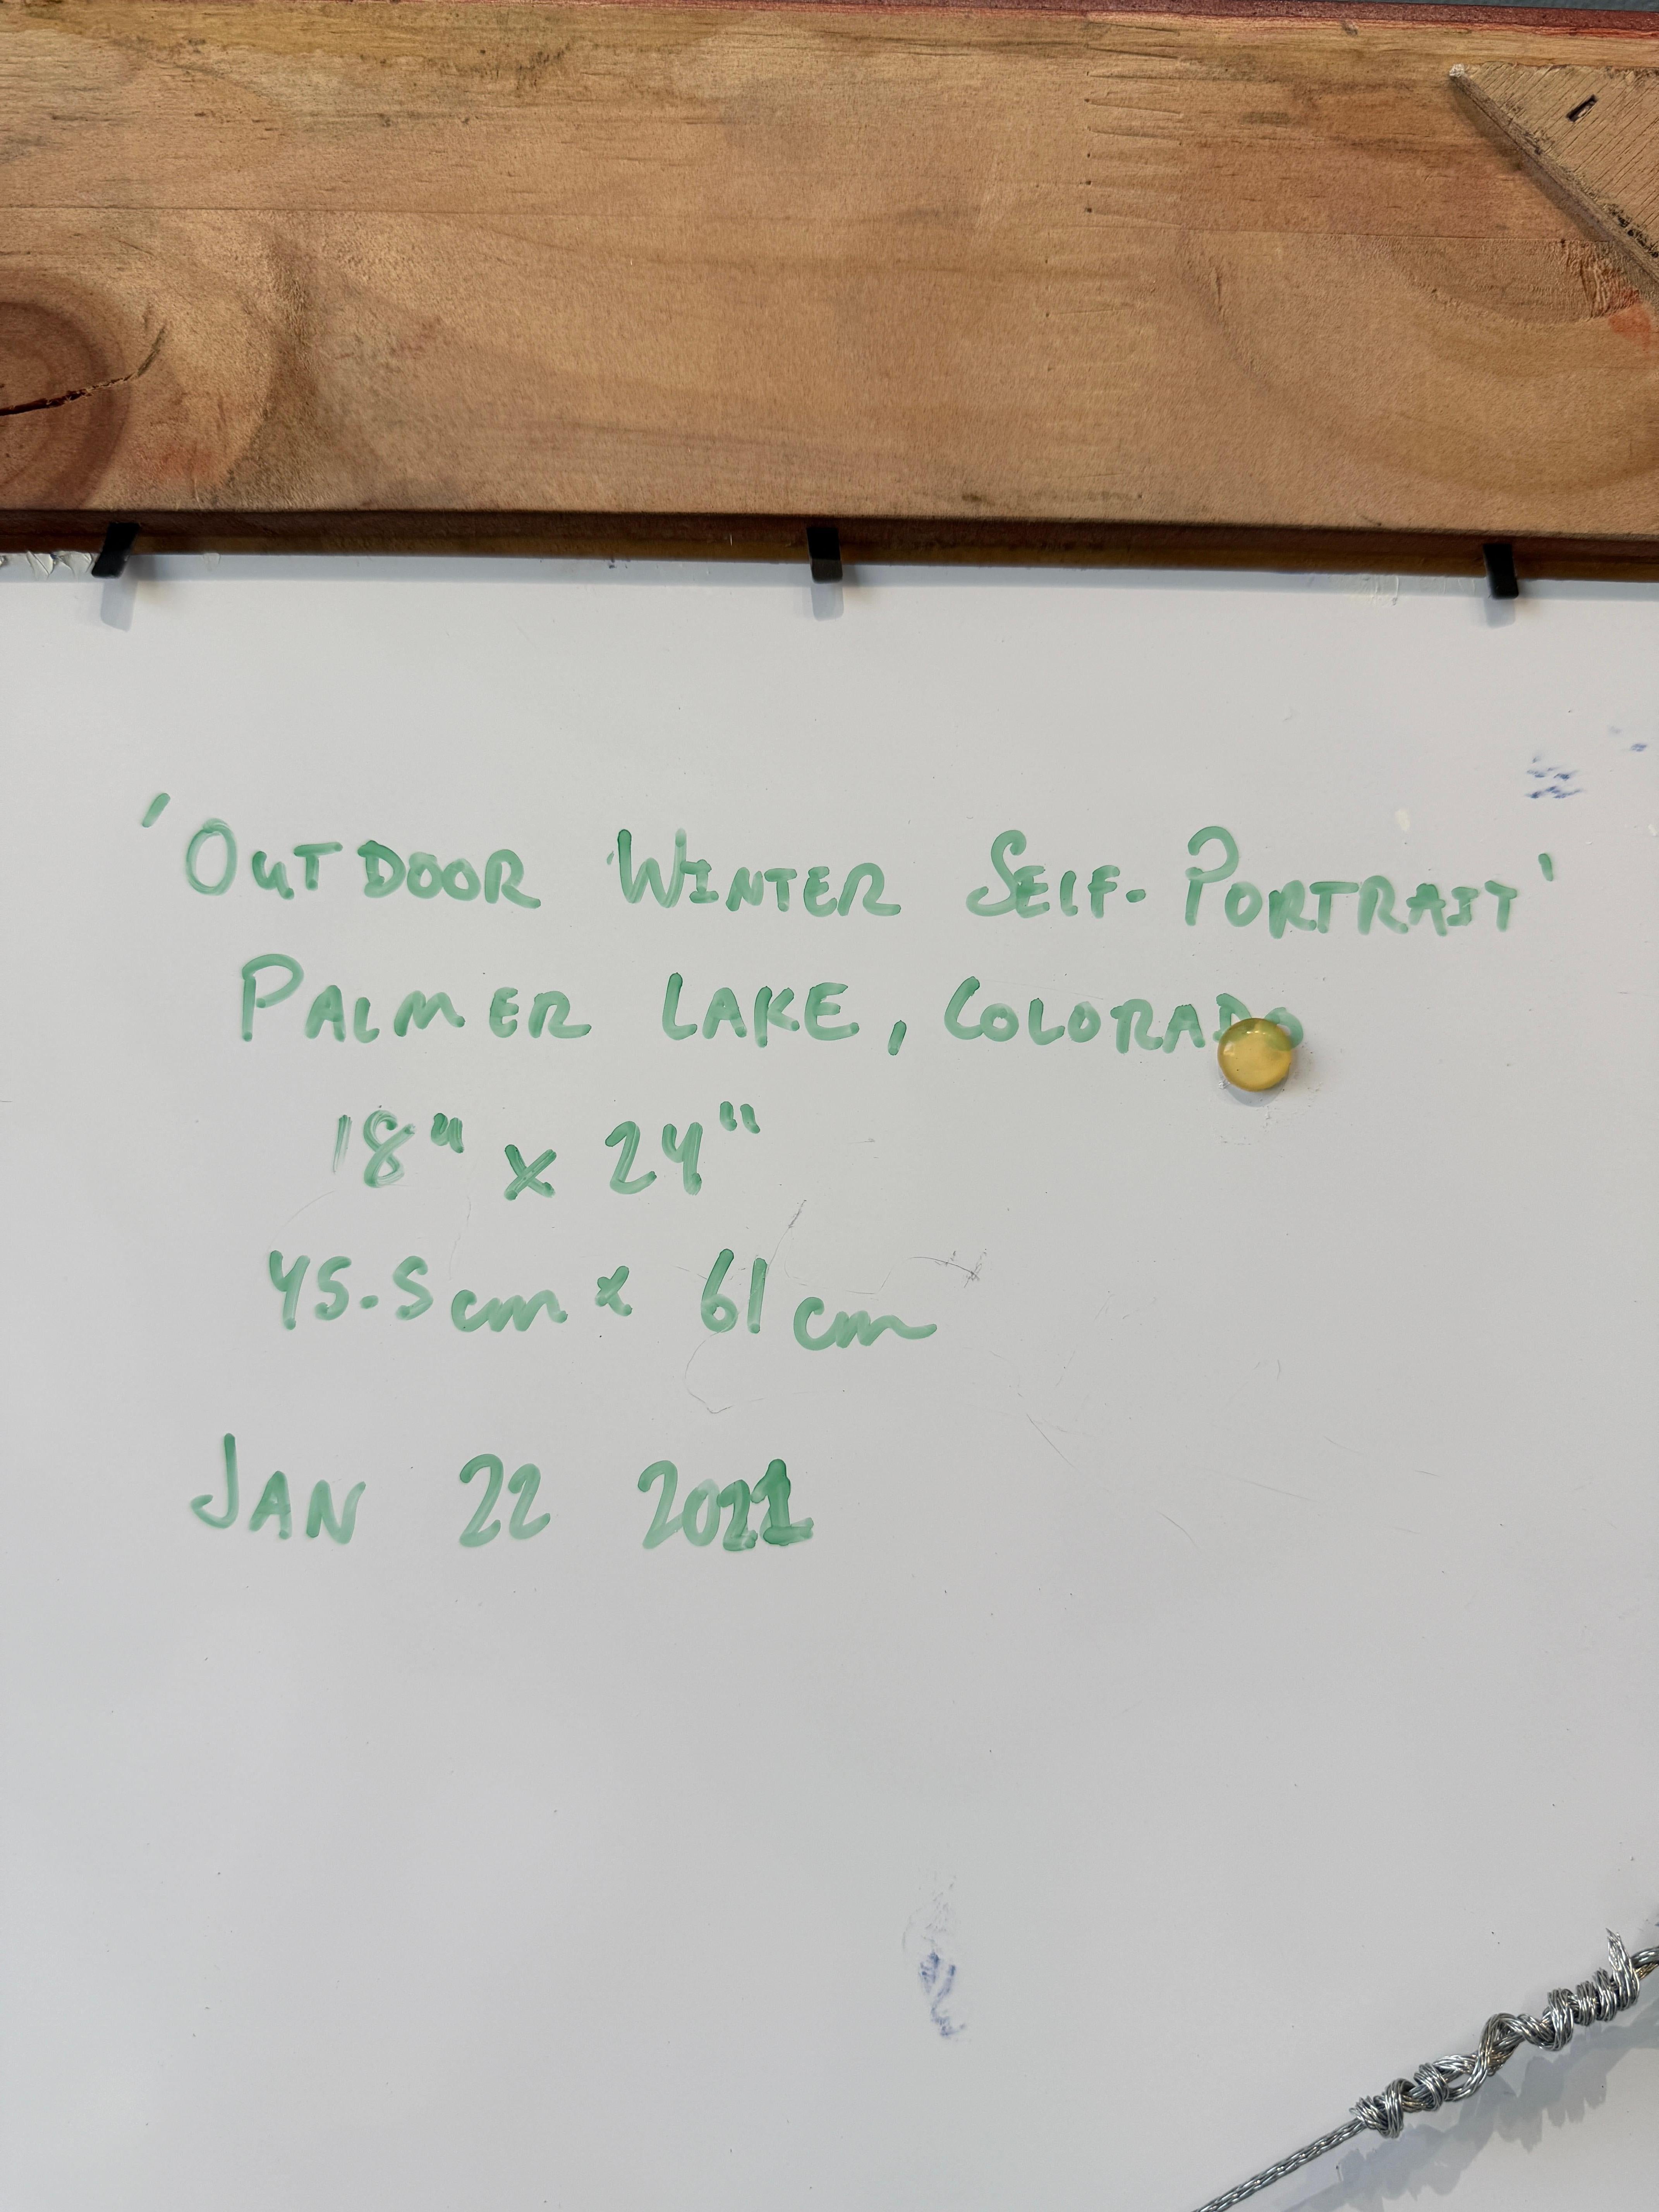 'OUTDOOR WINTER SELF-PORTRAIT'
PALMER LAKE, COLORADO
18" x 24"
45.5cm x 61cm
JAN 22 2021